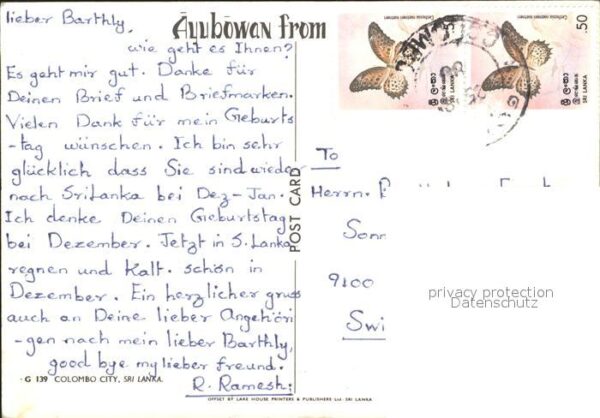 lieber Barthly,
wie geht es Ihnen?
Es geht mir gut. Danke für
Deinen Brief und Briefmarken.
Vielen Dank für mein Geburts
-tag wünschen. Ich bin sehr
glücklich dass Sie sind wieder
nach SriLanka bei Dez-Jan.
Ich denke Deinen Geburtstag
bei Dezember. Jetzt in S.Lanka
regnen und Kalt. schön in
Dezember. Ein herzlicher gruss
auch an Deine lieber Angehöri
-gen nach mein lieber Barthly,
good bye my lieber freund.
R. Ramesh;
G 139 COLOMBO CITY, SRI LANKA.
Āyubōwan from
POST CARD
OFFSET BY LAKE HOUSE PRINTERS & PUBLISHERS Ltd. SRI LANKA
.50
SRI LANKA
SRI LANKA
To
Herrn.
Sonn
9100
Swi
privacy protection
Datenschutz